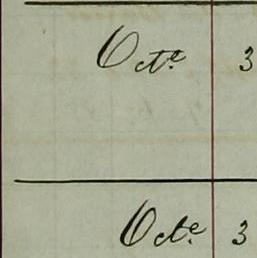 Octe 3
Octe 3